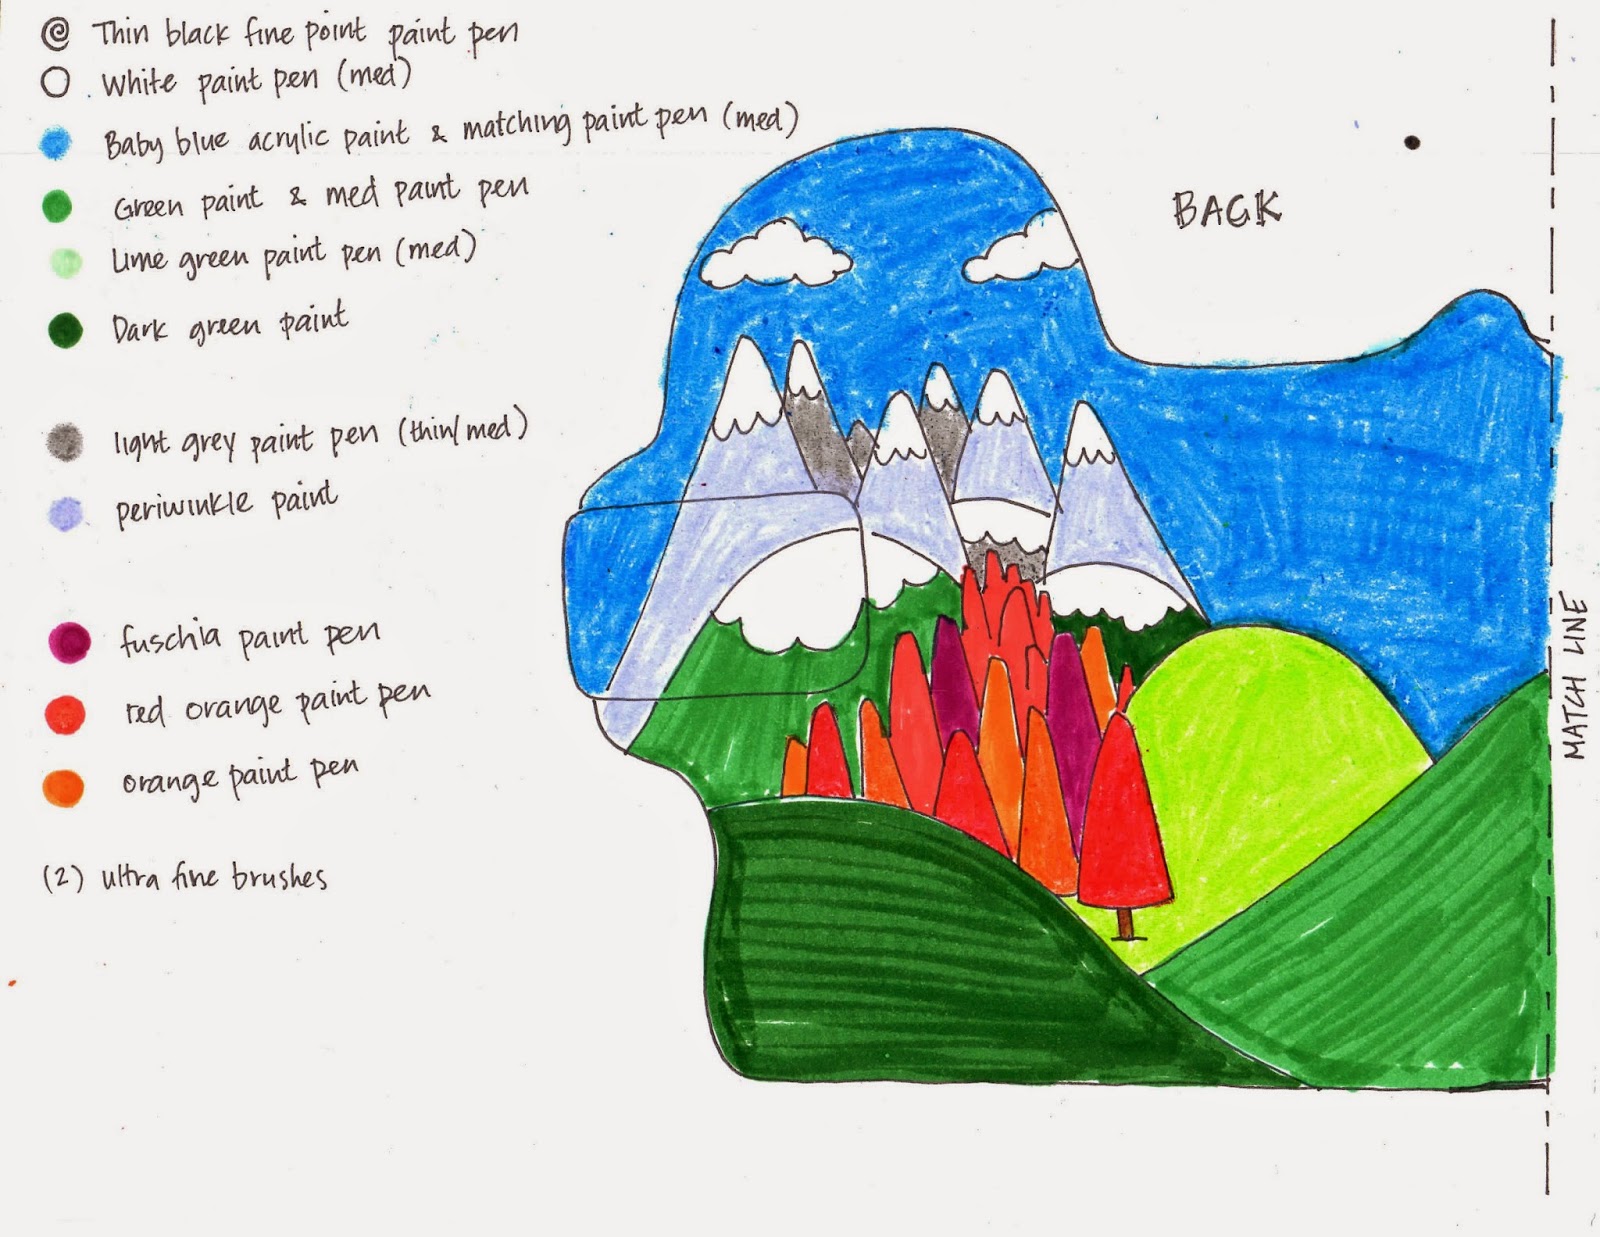 Thin black fine point paint pen
White paint pen (med)
Baby blue acrylic paint & matching paint pen (med)
Green paint & med paint pen
Lime green paint pen (med)
Dark green paint
light grey paint pen (thin/med)
periwinkle paint
fuschia paint pen
red orange paint pen
orange paint pen
(2) ultra fine brushes
BACK
MATCH LINE